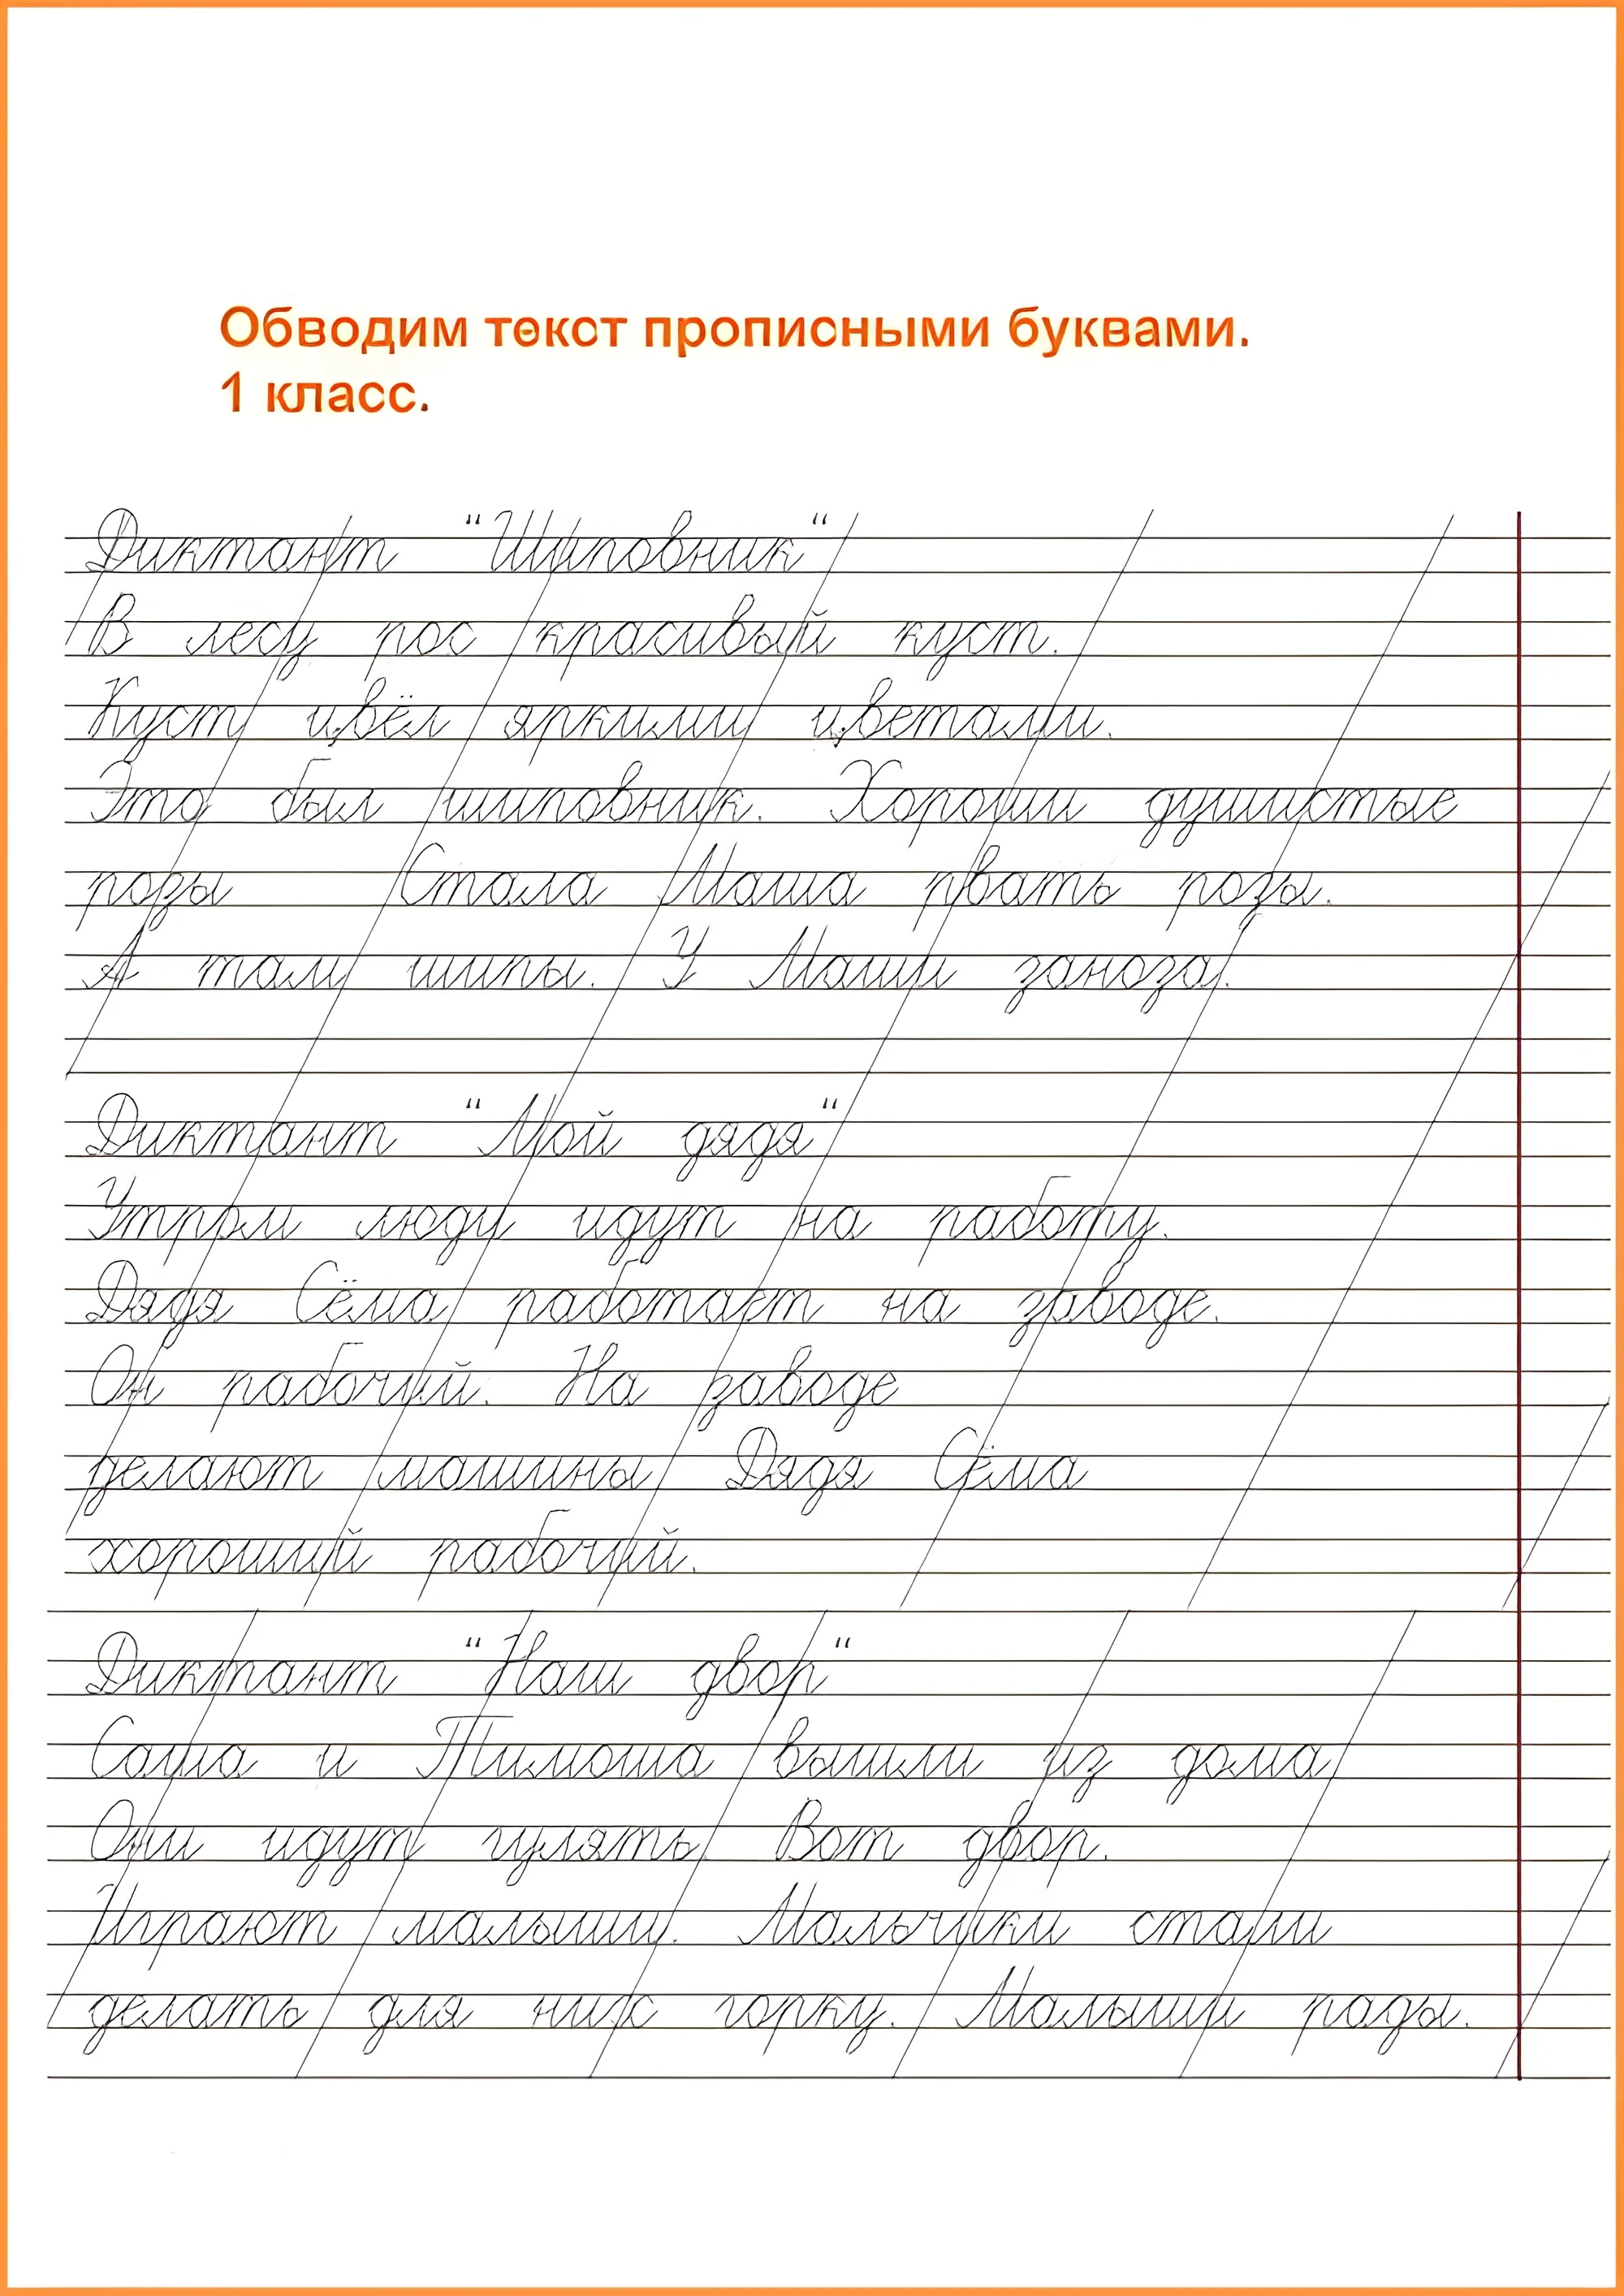 Обводим текст прописными буквами.
1 класс.
Диктант "Шиповник"
В лесу рос красивый куст.
Куст цвёл яркими цветами.
Это был шиповник. Хороши душистые
розы Стала Маша рвать розы.
А там шипы. У Маши заноза.
Диктант "Мой дядя"
Утром люди идут на работу.
Дядя Сёма работает на заводе.
Он рабочий. На заводе
делают машины Дядя Сёма
хороший рабочий.
Диктант "Наш двор"
Саша и Тимоша вышли из дома
Они идут гулять. Вот двор.
Играют малыши. Мальчики стали
делать для них горку. Малыши рады.